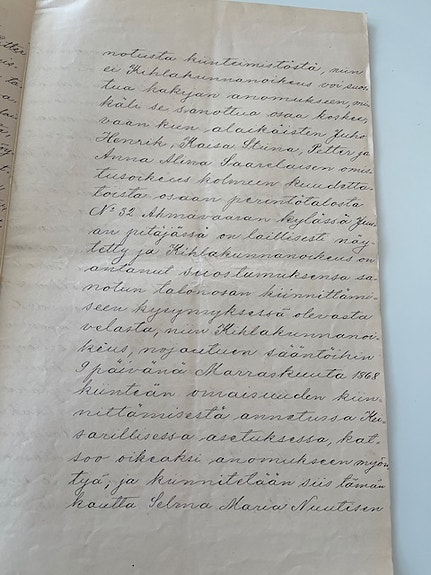 notusta kiinteimistöstä, niin
ei Kihlakunnanoikeus voi suos-
tua hakijan anomukseen, mi-
käli se sanottua osaa koskee,
vaan kun alaikäisten Juho
Henrik, Kaisa Stiina, Petter ja
Anna Alina Saarelaisen omis-
tusoikeus kolmeen kuudetta-
toista osaan perintötalosta
No 32 Ahmavaaran kylässä Juu-
an pitäjässä on laillisesti näy-
tetty ja Kihlakunnanoikeus on
antanut suostumuksensa sa-
notun talonosan kiinnittämi-
seen kysymyksessä olevasta
velasta, niin Kihlakunnanoi-
keus, nojautuen sääntöihin
9 päivänä Marraskuuta 1868
kiinteän omaisuuden kiin-
nittämisestä annetussa Kei-
sarillisessa asetuksessa, kat-
soo oikeaksi anomukseen myön-
tyä, ja kiinnitetään siis tämän
kautta Selma Maria Nuutisen